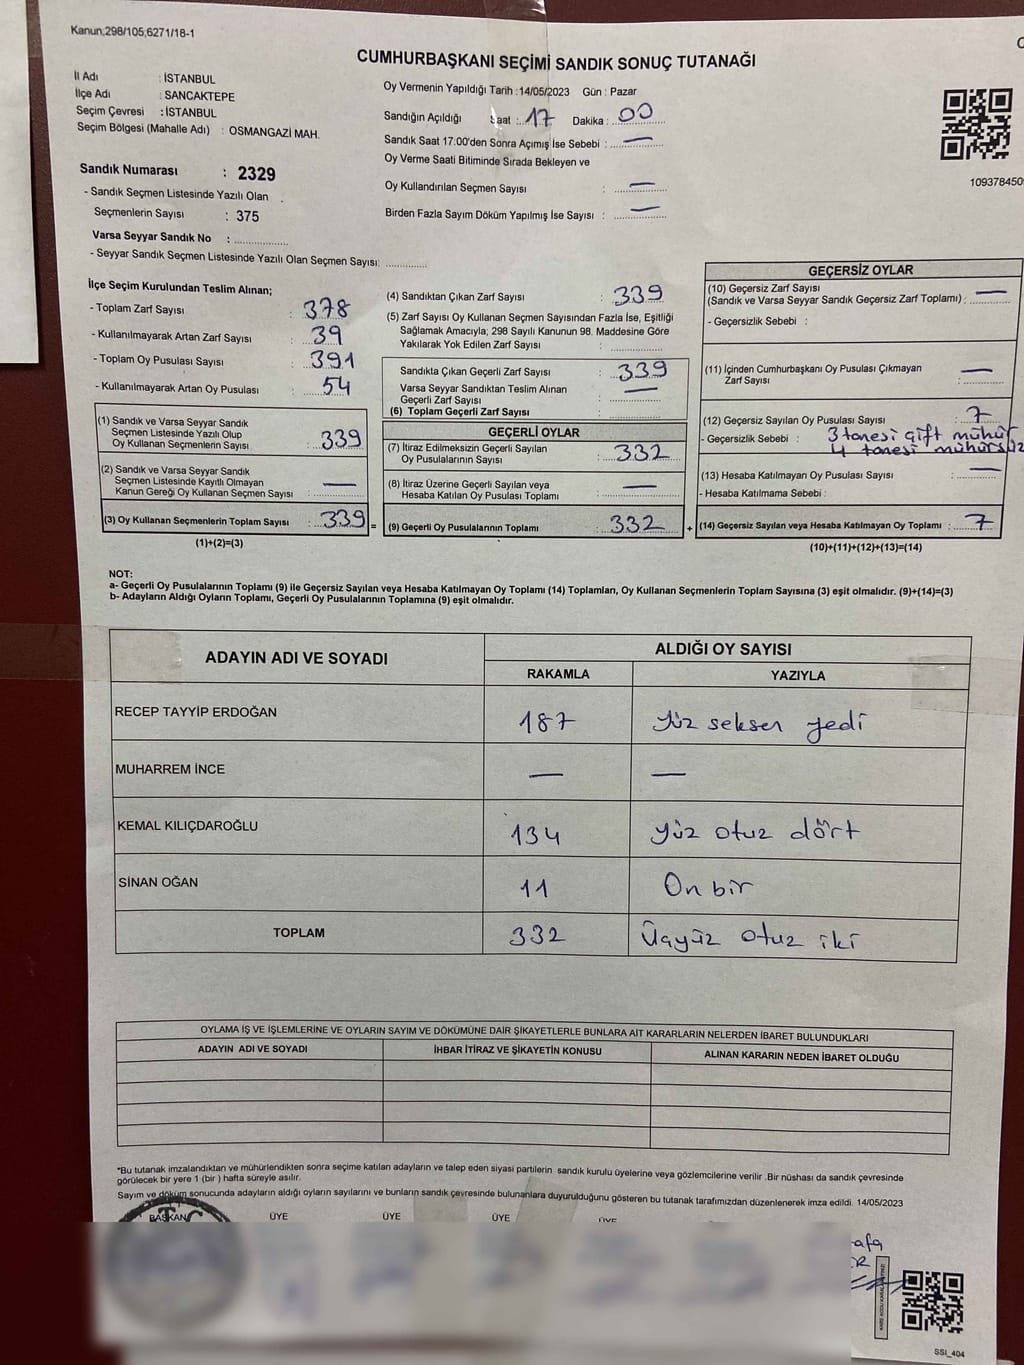 Kanun,298/105,6271/18-1
CUMHURBAŞKANI SEÇİMİ SANDIK SONUÇ TUTANAĞI
İl Adı : İSTANBUL
İlçe Adı : SANCAKTEPE
Seçim Çevresi : İSTANBUL
Seçim Bölgesi (Mahalle Adı) : OSMANGAZİ MAH.
Sandık Numarası : 2329
- Sandık Seçmen Listesinde Yazılı Olan
Seçmenlerin Sayısı : 375
Varsa Seyyar Sandık No : ................
- Seyyar Sandık Seçmen Listesinde Yazılı Olan Seçmen Sayısı: ............
Oy Vermenin Yapıldığı Tarih :14/05/2023 Gün : Pazar
Sandığın Açıldığı Saat : 17 Dakika : 00
Sandık Saat 17:00'den Sonra Açımış İse Sebebi : —
Oy Verme Saati Bitiminde Sırada Bekleyen ve
Oy Kullandırılan Seçmen Sayısı : —
Birden Fazla Sayım Döküm Yapılmış İse Sayısı : —
109378450
İlçe Seçim Kurulundan Teslim Alınan;
- Toplam Zarf Sayısı : 378
- Kullanılmayarak Artan Zarf Sayısı : 39
- Toplam Oy Pusulası Sayısı : 391
- Kullanılmayarak Artan Oy Pusulası : 54
(1) Sandık ve Varsa Seyyar Sandık
Seçmen Listesinde Yazılı Olup
Oy Kullanan Seçmenlerin Sayısı : 339
(2) Sandık ve Varsa Seyyar Sandık
Seçmen Listesinde Kayıtlı Olmayan
Kanun Gereği Oy Kullanan Seçmen Sayısı : —
(3) Oy Kullanan Seçmenlerin Toplam Sayısı : 339 =
(1)+(2)=(3)
(4) Sandıktan Çıkan Zarf Sayısı : 339
(5) Zarf Sayısı Oy Kullanan Seçmen Sayısından Fazla İse, Eşitliği
Sağlamak Amacıyla; 298 Sayılı Kanunun 98. Maddesine Göre
Yakılarak Yok Edilen Zarf Sayısı : ................
Sandıkta Çıkan Geçerli Zarf Sayısı : 339
Varsa Seyyar Sandıktan Teslim Alınan
Geçerli Zarf Sayısı : —
(6) Toplam Geçerli Zarf Sayısı : ................
GEÇERLİ OYLAR
(7) İtiraz Edilmeksizin Geçerli Sayılan
Oy Pusulalarının Sayısı : 332
(8) İtiraz Üzerine Geçerli Sayılan veya
Hesaba Katılan Oy Pusulası Toplamı : —
(9) Geçerli Oy Pusulalarının Toplamı : 332 +
GEÇERSİZ OYLAR
(10) Geçersiz Zarf Sayısı
(Sandık ve Varsa Seyyar Sandık Geçersiz Zarf Toplamı) : —
- Geçersizlik Sebebi :
(11) İçinden Cumhurbaşkanı Oy Pusulası Çıkmayan
Zarf Sayısı : —
(12) Geçersiz Sayılan Oy Pusulası Sayısı : 7
- Geçersizlik Sebebi : 3 tanesi çift mühür
4 tanesi mühürsüz
(13) Hesaba Katılmayan Oy Pusulası Sayısı : —
- Hesaba Katılmama Sebebi :
(14) Geçersiz Sayılan veya Hesaba Katılmayan Oy Toplamı : 7
(10)+(11)+(12)+(13)=(14)
NOT:
a- Geçerli Oy Pusulalarının Toplamı (9) ile Geçersiz Sayılan veya Hesaba Katılmayan Oy Toplamı (14) Toplamları, Oy Kullanan Seçmenlerin Toplam Sayısına (3) eşit olmalıdır. (9)+(14)=(3)
b- Adayların Aldığı Oyların Toplamı, Geçerli Oy Pusulalarının Toplamına (9) eşit olmalıdır.
ADAYIN ADI VE SOYADI
ALDIĞI OY SAYISI
RAKAMLA YAZIYLA
RECEP TAYYİP ERDOĞAN 187 Yüz seksen yedi
MUHARREM İNCE — —
KEMAL KILIÇDAROĞLU 134 Yüz otuz dört
SİNAN OĞAN 11 On bir
TOPLAM 332 Üçyüz otuz iki
OYLAMA İŞ VE İŞLEMLERİNE VE OYLARIN SAYIM VE DÖKÜMÜNE DAİR ŞİKAYETLERLE BUNLARA AİT KARARLARIN NELERDEN İBARET BULUNDUKLARI
ADAYIN ADI VE SOYADI İHBAR İTİRAZ VE ŞİKAYETİN KONUSU ALINAN KARARIN NEDEN İBARET OLDUĞU
*Bu tutanak imzalandıktan ve mühürlendikten sonra seçime katılan adayların ve talep eden siyasi partilerin sandık kurulu üyelerine veya gözlemcilerine verilir .Bir nüshası da sandık çevresinde
görülecek bir yere 1 (bir ) hafta süreyle asılır.
Sayım ve döküm sonucunda adayların aldığı oyların sayılarını ve bunların sandık çevresinde bulunanlara duyurulduğunu gösteren bu tutanak tarafımızdan düzenlenerek imza edildi. 14/05/2023
BAŞKAN ÜYE ÜYE ÜYE ÜYE
T.C.
SSI_404